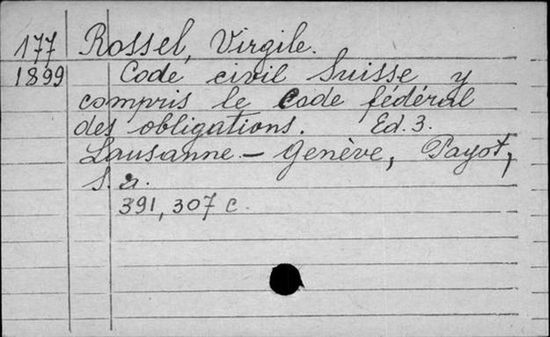 177 Rossel, Virgile.
1899 Code civil Suisse y
compris le Code fédéral
des obligations. Ed. 3.
Lausanne - Genève, Payot,
s. a.
391, 307 c.